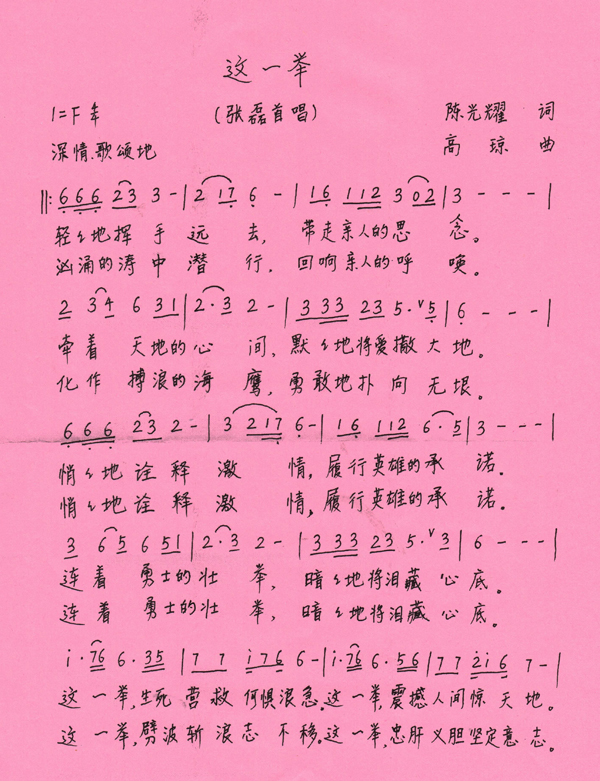 这一举
1=F 4/4 (张磊首唱) 陈光耀 词
深情、歌颂地 高琼 曲
‖: 6 6 6 2 3 3 - | 2 1 7 6 - | 1 6 1 1 2 3 0 2 | 3 - - - |
轻々地挥手远去, 带走亲人的思念。
汹涌的涛中潜行, 回响亲人的呼唤。
2 3 4 6 3 1 | 2 · 3 2 - | 3 3 3 3 2 3 5 · ∨ 5 | 6 - - - |
牵着天地的心间, 默々地将爱撒大地。
化作搏浪的海鹰, 勇敢地扑向无垠。
6 6 6 2 3 2 - | 3 2 1 7 6 - | 1 6 1 1 2 6 · 5 | 3 - - - |
悄々地诠释激情, 履行英雄的承诺。
悄々地诠释激情, 履行英雄的承诺。
3 6 5 6 5 1 | 2 · 3 2 - | 3 3 3 3 2 3 5 · ∨ 3 | 6 - - - |
连着勇士的壮举, 暗々地将泪藏心底。
连着勇士的壮举, 暗々地将泪藏心底。
i · 7 6 6 · 3 5 | 7 7 i 7 6 6 - | i · 7 6 6 · 5 6 | 7 7 2 i 6 7 - |
这一举,生死营救何惧浪急。这一举,震撼人间惊天地。
这一举,劈波斩浪志不移。这一举,忠肝义胆坚定意志。